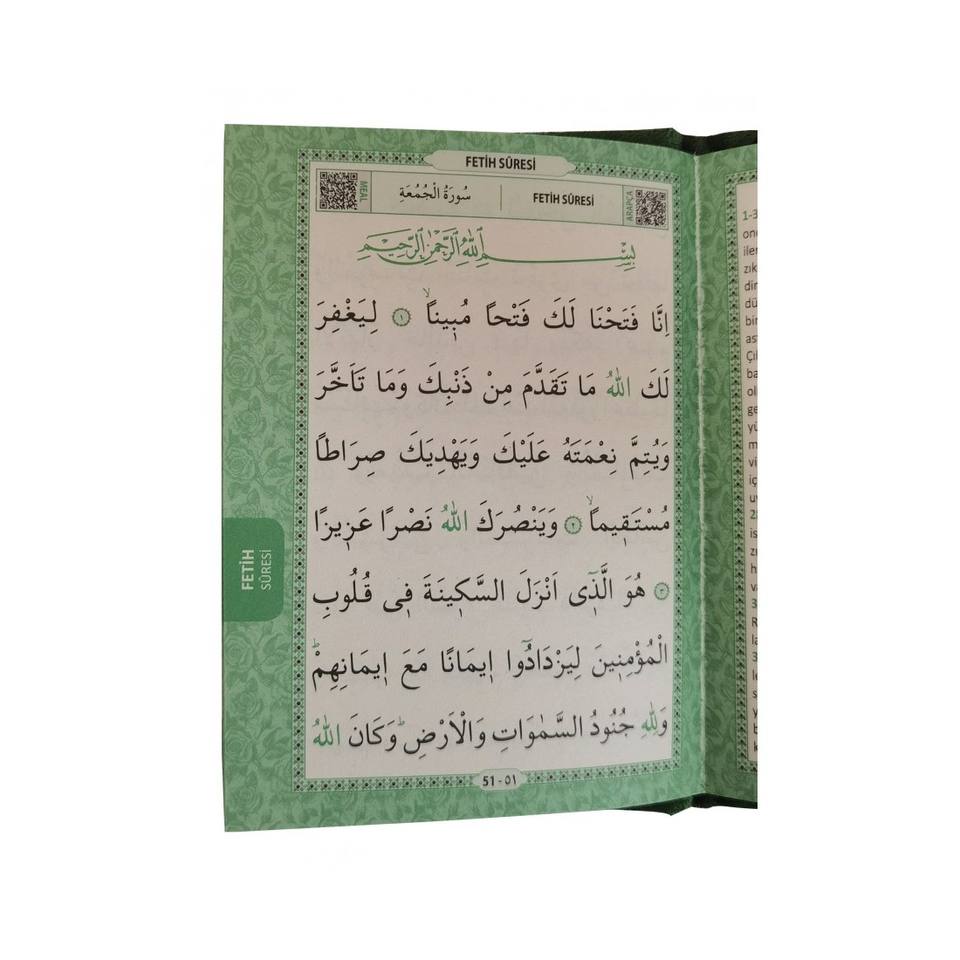 FETİH SÛRESİ
MEAL
سُورَةُ الْجُمُعَةِ
FETİH SÛRESİ
ARAPÇA
بِسْمِ اللّٰهِ الرَّحْمٰنِ الرَّح۪يمِ
اِنَّا فَتَحْنَا لَكَ فَتْحًا مُب۪ينًاۙ ﴿١﴾ لِيَغْفِرَ
لَكَ اللّٰهُ مَا تَقَدَّمَ مِنْ ذَنْبِكَ وَمَا تَاَخَّرَ
وَيُتِمَّ نِعْمَتَهُ عَلَيْكَ وَيَهْدِيَكَ صِرَاطًا
مُسْتَق۪يمًاۙ ﴿٢﴾ وَيَنْصُرَكَ اللّٰهُ نَصْرًا عَز۪يزًا
﴿٣﴾ هُوَ الَّذ۪ٓى اَنْزَلَ السَّك۪ينَةَ ف۪ى قُلُوبِ
الْمُؤْمِن۪ينَ لِيَزْدَادُٓوا ا۪يمَانًا مَعَ ا۪يمَانِهِمْۜ
وَلِلّٰهِ جُنُودُ السَّمٰوَاتِ وَالْاَرْضِۜ وَكَانَ اللّٰهُ
51 - ٥١
FETİH
SÛRESİ
1-3
2
3
3